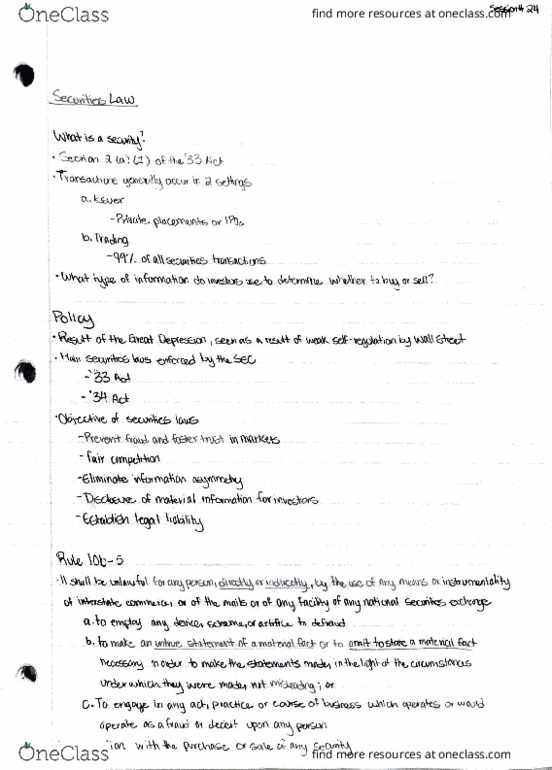 OneClass
find more resources at oneclass.com
Session# 24
Securities Law
What is a security?
• Section 2(a)(1) of the '33 Act
• Transactions generally occur in 2 settings
a. Issuer
- Private placements or IPOs
b. Trading
- 99% of all securities transactions
• What type of information do investors use to determine whether to buy or sell?
Policy
• Result of the Great Depression, seen as a result of weak self-regulation by Wall Street
• Main securities laws enforced by the SEC
- '33 Act
- '34 Act
• Objective of securities laws
- Prevent fraud and foster trust in markets
- Fair competition
- Eliminate information asymmetry
- Disclosure of material information for investors
- Establish legal liability
Rule 10b-5
• It shall be unlawful for any person, directly or indirectly, by the use of any means or instrumentality
of interstate commerce, or of the mails or of any facility of any national securities exchange
a. to employ any device, scheme, or artifice to defraud
b. to make an untrue statement of a material fact or to omit to state a material fact
necessary in order to make the statements made, in the light of the circumstances
under which they were made, not misleading; or
C. To engage in any act, practice or course of business which operates or would
operate as a fraud or deceit upon any person
with the purchase or sale of any security
OneClass
find more resources at oneclass.com